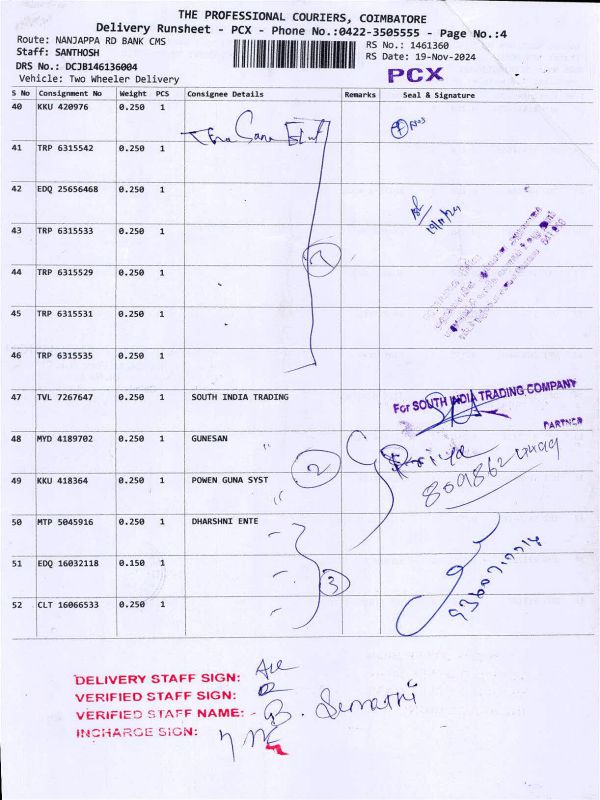 THE PROFESSIONAL COURIERS, COIMBATORE
Delivery Runsheet - PCX - Phone No.:0422-3505555 - Page No.:4
Route: NANJAPPA RD BANK CMS
RS No.: 1461360
Staff: SANTHOSH
RS Date: 19-Nov-2024
DRS No.: DCJB146136004
PCX
Vehicle: Two Wheeler Delivery
S No Consignment No Weight PCS Consignee Details Remarks Seal & Signature
40 KKU 420976 0.250 1
41 TRP 6315542 0.250 1
42 EDQ 25656468 0.250 1
19/11/24
43 TRP 6315533 0.250 1
7
44 TRP 6315529 0.250 1
45 TRP 6315531 0.250 1
46 TRP 6315535 0.250 1
47 TVL 7267647 0.250 1 SOUTH INDIA TRADING
For SOUTH INDIA TRADING COMPANY
PARTNER
48 MYD 4189702 0.250 1 GUNESAN
Priya
2
49 KKU 418364 0.250 1 POWEN GUNA SYST
50 MTP 5045916 0.250 1 DHARSHNI ENTE
51 EDQ 16032118 0.150 1
3
52 CLT 16066533 0.250 1
DELIVERY STAFF SIGN:
VERIFIED STAFF SIGN:
VERIFIED STAFF NAME:
INCHARGE SIGN: